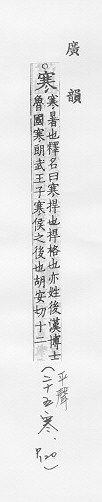 廣韻
寒
寒暑也釋名曰寒捍也捍格也亦姓後漢博士
魯國寒朗武王子寒侯之後也胡安切十二
(平聲
二十五寒.
P120)